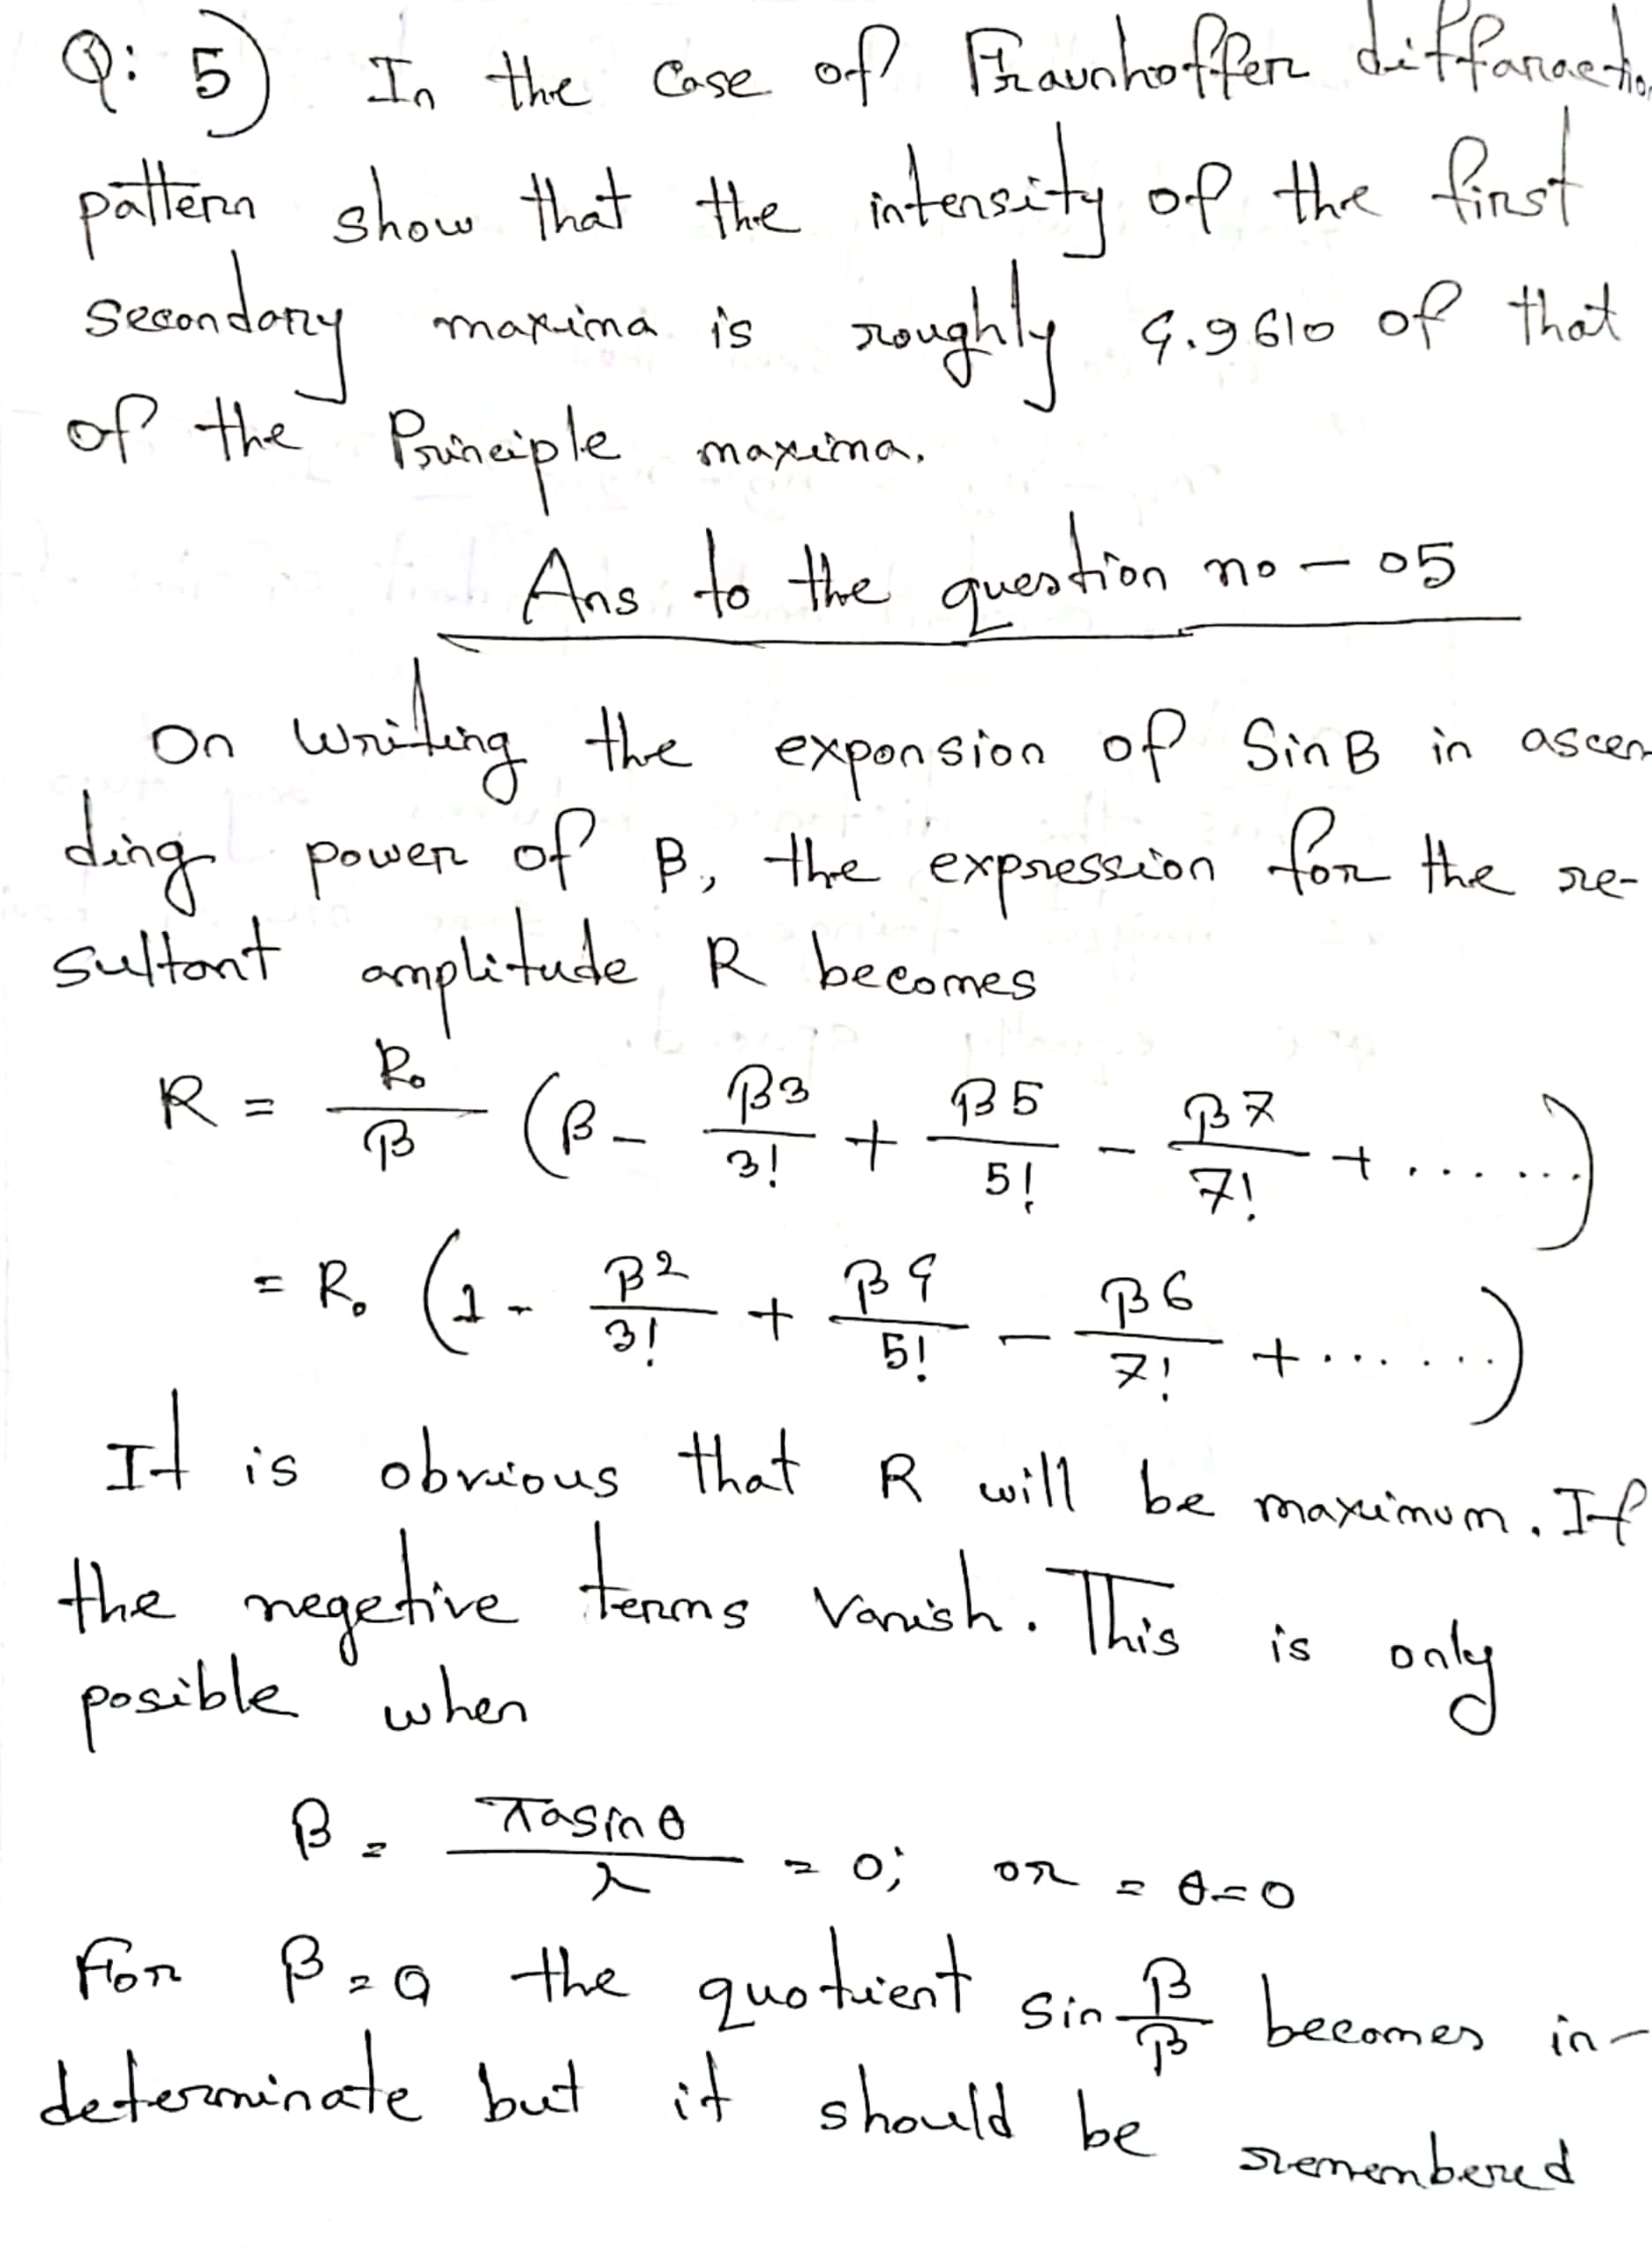 Q: 5) In the case of Fraunhoffer diffaraction
pattern show that the intensity of the first
secondary maxima is roughly 4.9610 of that
of the Principle maxima.
Ans to the question no - 05
On writing the expansion of SinB in ascen
ding power of β, the expression for the re-
sultant amplitude R becomes
R = R₀/β (β - β3/3! + β5/5! - β7/7! + .......)
= R₀ (1 - β2/3! + β4/5! - β6/7! + .......)
It is obvious that R will be maximum. If
the negetive terms vanish. This is only
posible when
β = πasinθ/λ = 0; or = θ=0
For β = 0 the quotient sin β/β becomes in-
determinate but it should be remembered